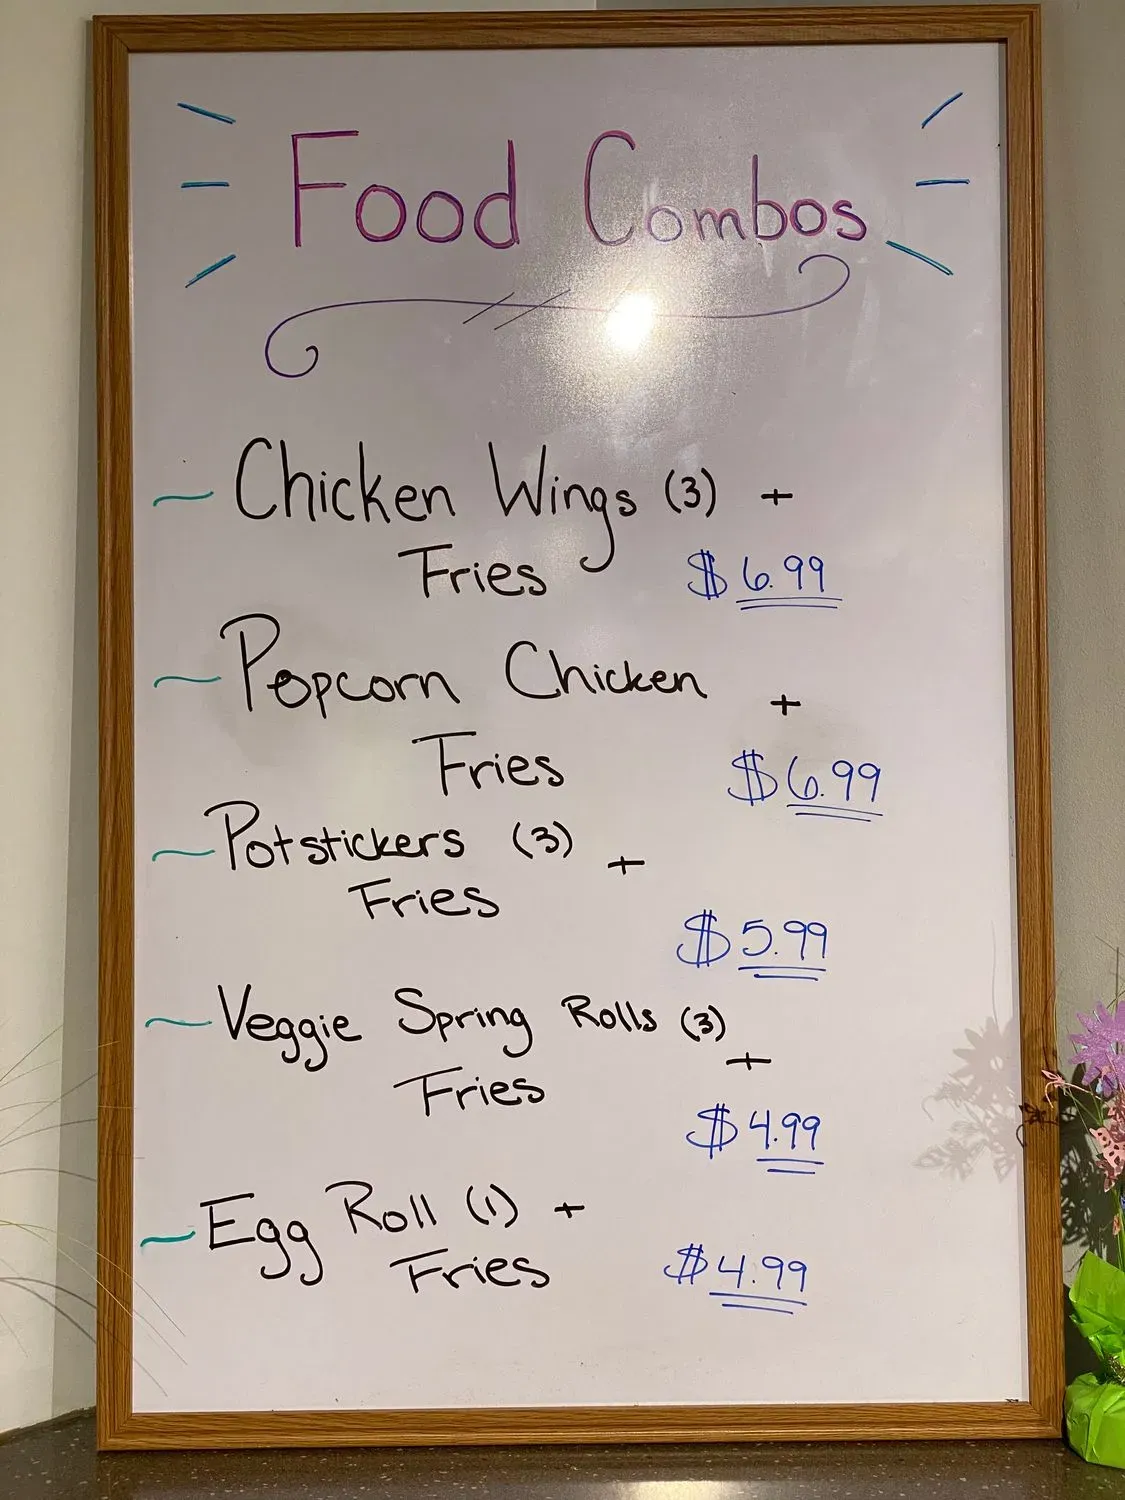 Food Combos
~ Chicken Wings (3) +
Fries $6.99
~ Popcorn Chicken +
Fries $6.99
~ Potstickers (3) +
Fries
$5.99
~ Veggie Spring Rolls (3) +
Fries
$4.99
~ Egg Roll (1) +
Fries $4.99